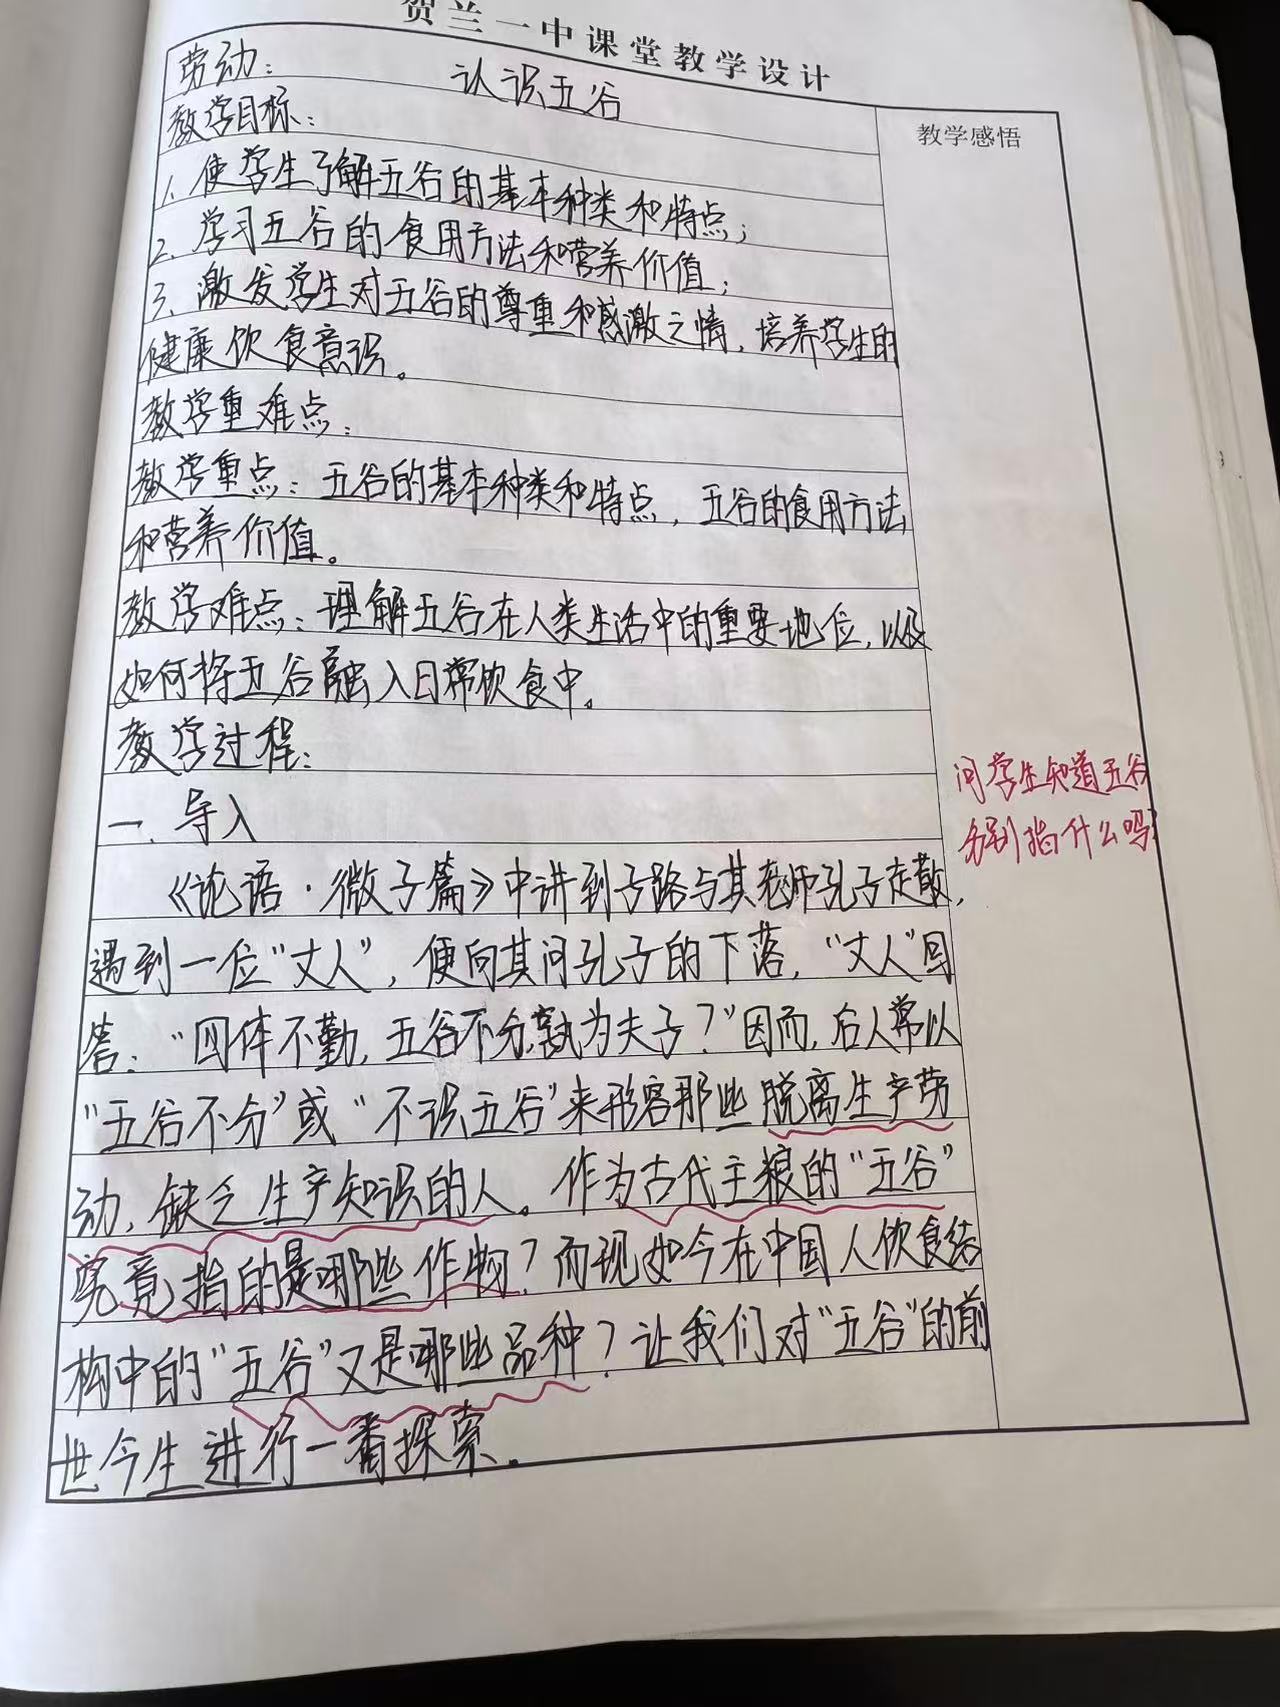 贺兰一中课堂教学设计
劳动：
认识五谷
教学感悟
教学目标：
1、使学生了解五谷的基本种类和特点；
2、学习五谷的食用方法和营养价值；
3、激发学生对五谷的尊重和感激之情，培养学生的
健康饮食意识。
教学重难点：
教学重点：五谷的基本种类和特点，五谷的食用方法
和营养价值。
教学难点：理解五谷在人类生活中的重要地位，以及
如何将五谷融入日常饮食中。
教学过程：
一、导入
问学生知道五谷
分别指什么吗？
《论语·微子篇》中讲到子路与其老师孔子走散，
遇到一位“丈人”，便向其问孔子的下落，“丈人”回
答：“四体不勤，五谷不分，孰为夫子？”因而，后人常以
“五谷不分”或“不识五谷”来形容那些脱离生产劳
动，缺乏生产知识的人。作为古代主粮的“五谷”
究竟指的是哪些作物？而现如今在中国人饮食结
构中的“五谷”又是哪些品种？让我们对“五谷”的前
世今生进行一番探索。